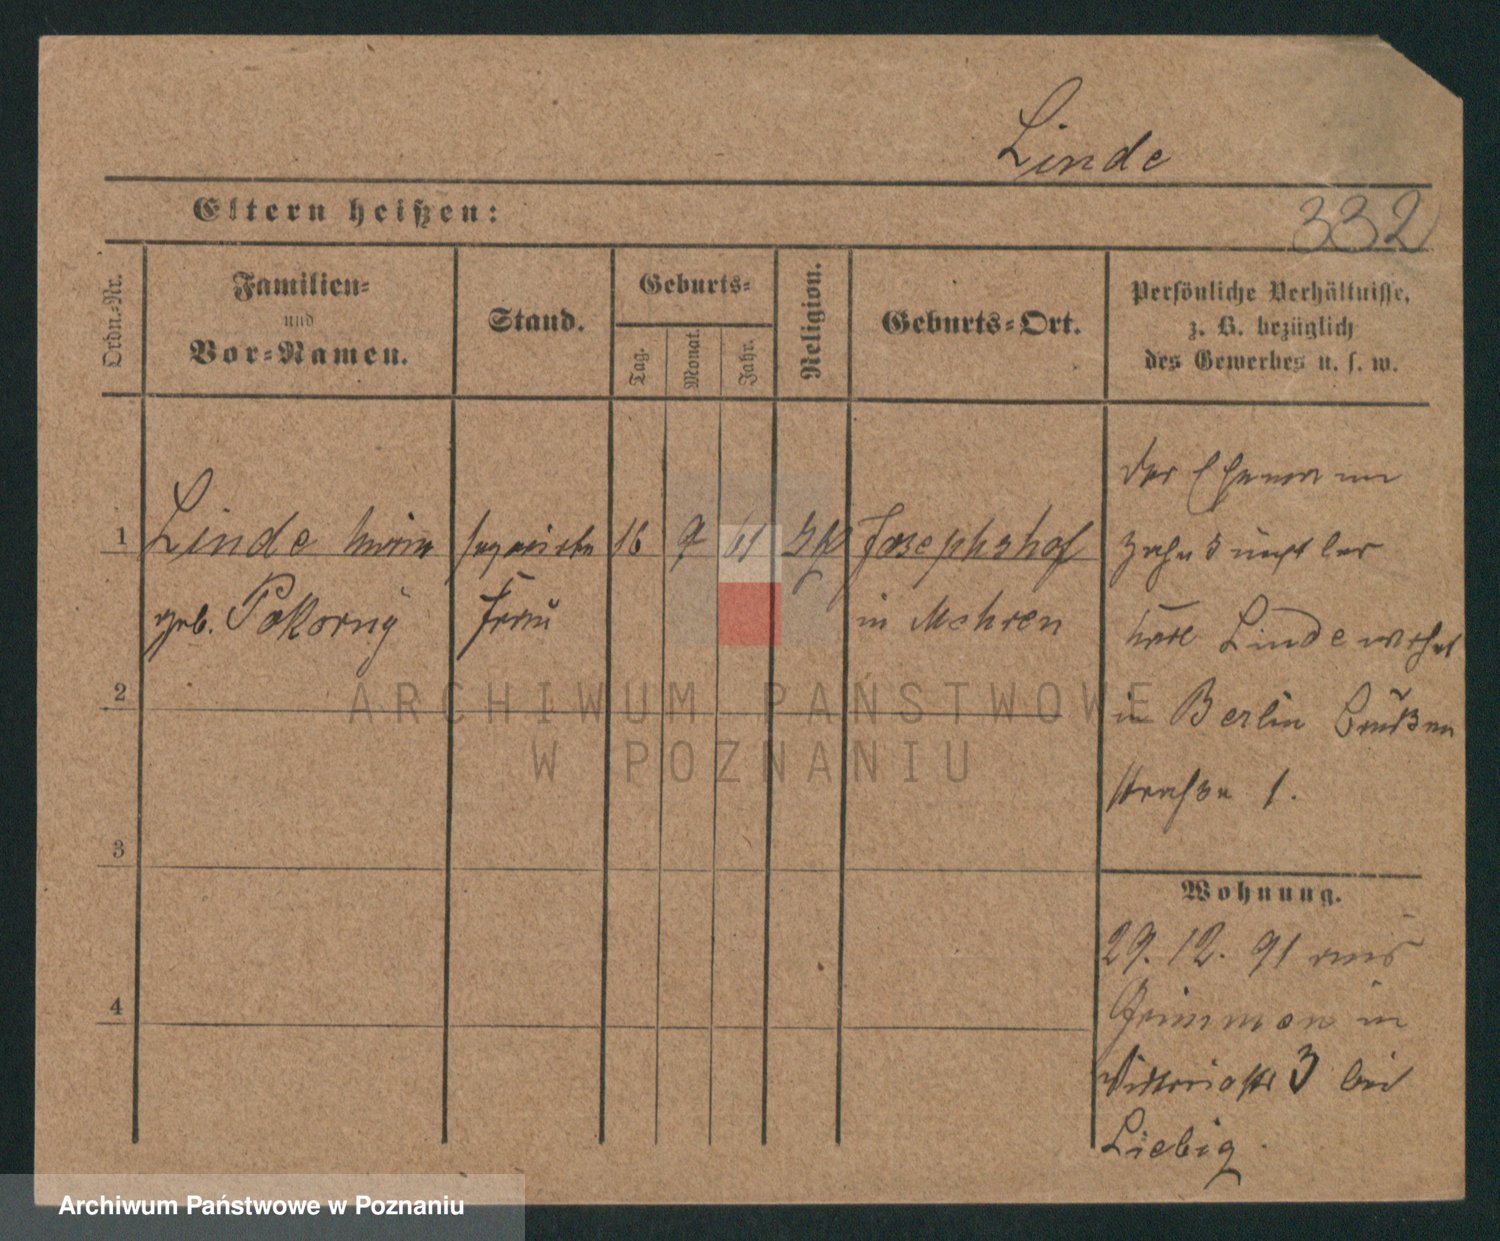 Linde
Eltern heißen:
332
Ordn.-Nr.
Familien-
und
Vor-Namen.
Stand.
Geburts-
Tag.
Monat.
Jahr.
Religion.
Geburts-Ort.
Persönliche Verhältnisse,
z. B. bezüglich
des Gewerbes u. s. w.
1
Linde
geb. Pokorny
separirte
Frau
16
9
61
Josephshof
in Mähren
der Ehemann
Zahnkünstler
Karl Linde wohnt
in Berlin
straße 1.
2
3
4
Wohnung.
29. 12. 91 aus
in
Viktoriastr 3 bei
Liebig
ARCHIWUM PAŃSTWOWE
W POZNANIU
Archiwum Państwowe w Poznaniu